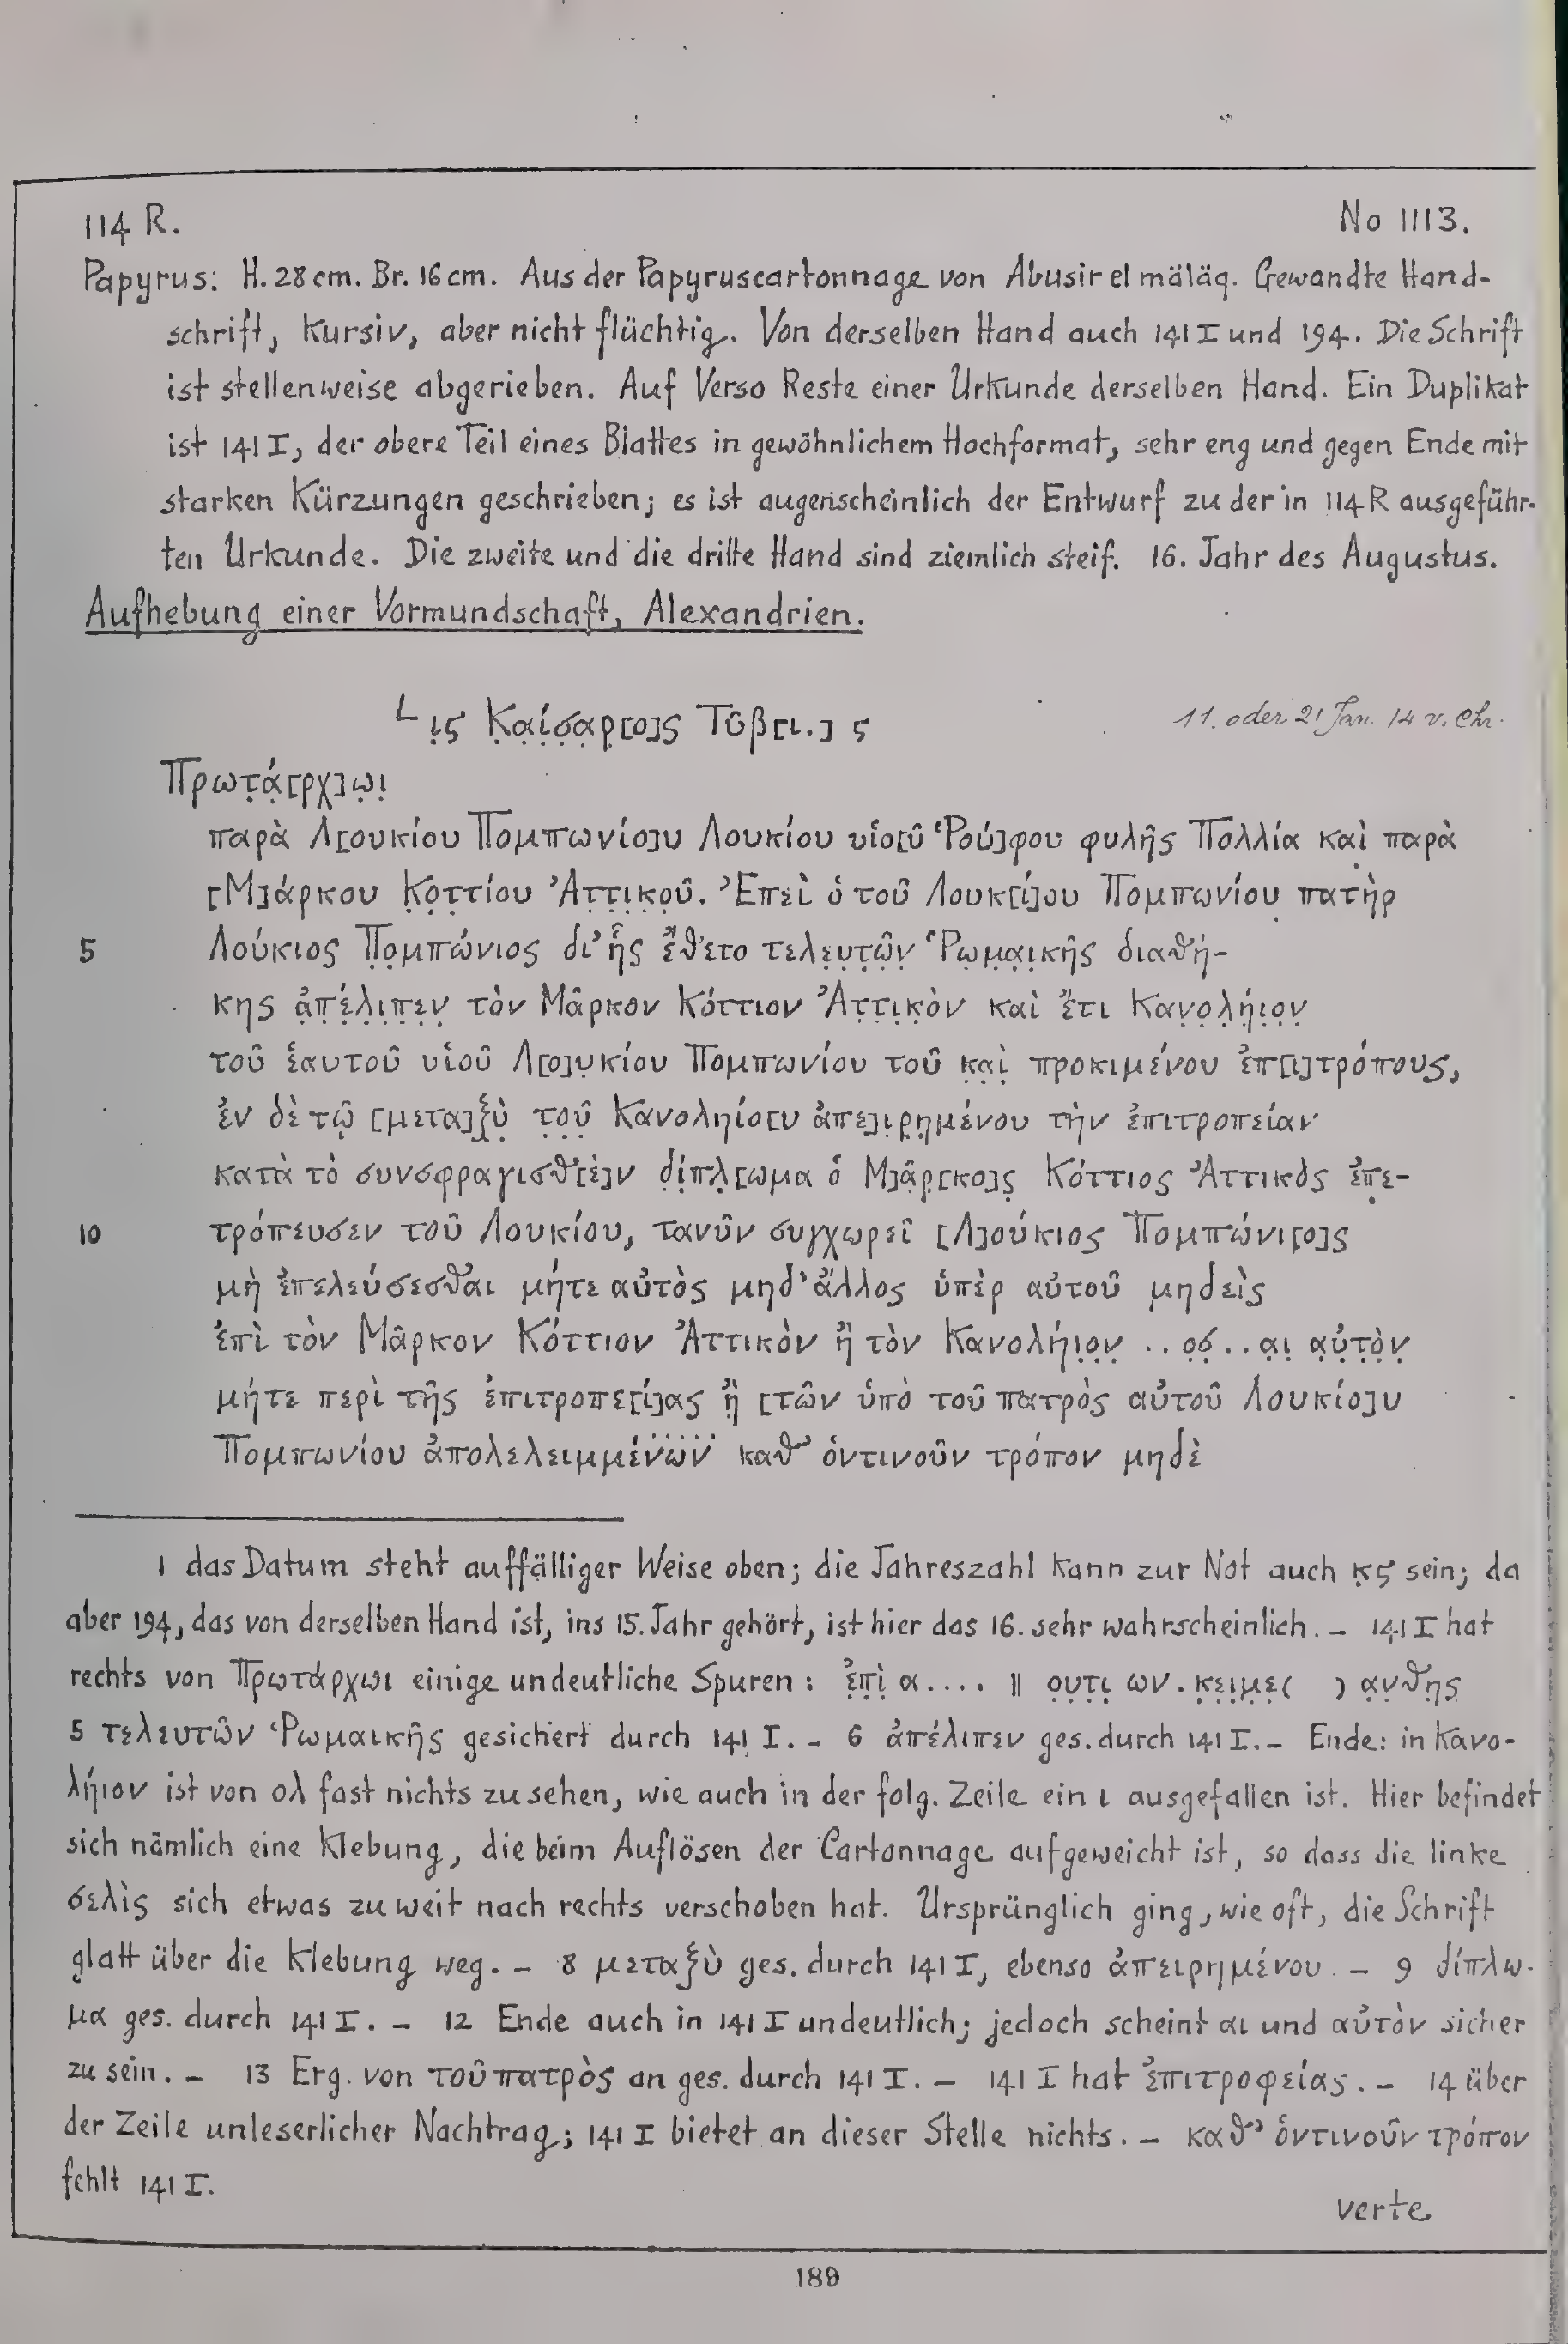 114 R. No 1113.
Papyrus: H. 28 cm. Br. 16 cm. Aus der Papyruscartonnage von Abusir el mäläq. Gewandte Hand-
schrift, kursiv, aber nicht flüchtig. Von derselben Hand auch 141 I und 194. Die Schrift
ist stellenweise abgerieben. Auf Verso Reste einer Urkunde derselben Hand. Ein Duplikat
ist 141 I, der obere Teil eines Blattes in gewöhnlichem Hochformat, sehr eng und gegen Ende mit
starken Kürzungen geschrieben; es ist augenscheinlich der Entwurf zu der in 114 R ausgeführ-
ten Urkunde. Die zweite und die dritte Hand sind ziemlich steif. 16. Jahr des Augustus.
Aufhebung einer Vormundschaft, Alexandrien.
└ ι̣ϛ Κ̣α̣ί̣σ̣α̣ρ̣[ο]ς Τῦβ̣[ι.] ϛ 11. oder 21 Jan. 14 v. Chr.
Πρωτ̣ά̣[ρχ]ω̣ι̣
παρὰ Λ[ουκίου Πομπωνίο]υ Λουκίου υἱο[ῦ Ῥού]φου φυλῆς Πολλία καὶ παρὰ
[Μ]άρκου Κ̣ο̣τ̣τίου Ἀτ̣τ̣ι̣κ̣ο̣ῦ. Ἐπεὶ ὁ τοῦ Λουκ[ί]ου Πομπωνίου πατὴρ
5 Λούκιος Π̣ο̣μπώνιος δι’ ἧς ἔθετο τελ̣ε̣υ̣τ̣ῶ̣ν̣ Ῥω̣μ̣α̣ι̣κῆς διαθή-
κης ἀ̣π̣έ̣λ̣ι̣π̣ε̣ν̣ τὸν Μᾶρκον Κόττιον Ἀτ̣τ̣ι̣κ̣ὸν καὶ ἔτι Καν̣ο̣λ̣ή̣ι̣ο̣ν̣
τοῦ ἑαυτοῦ υἱοῦ Λ[ο]υ̣κίου Πομπωνίου τοῦ κ̣α̣ὶ̣ προκιμένου ἐπ[ι]τρόπους,
ἐν δὲ τῷ [μετα]ξ̣ὺ̣ τ̣ο̣ῦ̣ Κανοληίο[υ ἀπε]ι̣ρ̣η̣μένου τὴν ἐπιτροπείαν
κατὰ τὸ συνσφραγισθ[ὲ]ν δ̣ί̣π̣λ̣[ωμα ὁ Μ]ᾶ̣ρ̣[κο]ς̣ Κόττιος Ἀττικὸς ἐπ̣ε-
10 τρόπευσεν τοῦ Λουκίου, τανῦν συγχωρεῖ [Λ]ούκιος Πομπώνι[ο]ς
μὴ ἐπελεύσεσθαι μήτε αὐτὸς μηδ’ ἄλλος ὑπὲρ αὐτοῦ μηδεὶς
ἐπὶ τὸν Μᾶρκον Κόττιον Ἀττικὸν ἢ τὸν Κανολήι̣ο̣ν̣ .. ο̣σ̣ .. α̣ι̣ α̣ὐ̣τ̣ὸ̣ν̣
μήτε περὶ τῆς ἐπιτροπε[ί]ας ἢ̣ [τῶν ὑπὸ τοῦ πατρὸς αὐτοῦ Λουκίο]υ
Πομπωνίου ἀπολελειμμένων καθ’ ὁντινοῦν τρόπον μηδὲ
1 das Datum steht auffälliger Weise oben; die Jahreszahl kann zur Not auch κ̣ϛ sein; da
aber 194, das von derselben Hand ist, ins 15. Jahr gehört, ist hier das 16. sehr wahrscheinlich. – 141 I hat
rechts von Πρωτάρχωι einige undeutliche Spuren: ἐ̣π̣ὶ̣ α.... || ο̣υ̣τ̣ι̣ ων. κ̣ε̣ι̣μ̣ε̣( ) α̣ν̣θη̣ς̣
5 τελευτῶν Ῥωμαικῆς gesichert durch 141 I. – 6 ἀπέλιπεν ges. durch 141 I. – Ende: in Κανο-
λήιον ist von ολ fast nichts zu sehen, wie auch in der folg. Zeile ein ι ausgefallen ist. Hier befindet
sich nämlich eine Klebung, die beim Auflösen der Cartonnage aufgeweicht ist, so dass die linke
σελὶς sich etwas zu weit nach rechts verschoben hat. Ursprünglich ging, wie oft, die Schrift
glatt über die Klebung weg. – 8 μεταξὺ ges. durch 141 I, ebenso ἀπειρημένου. – 9 δίπλω-
μα ges. durch 141 I. – 12 Ende auch in 141 I undeutlich; jedoch scheint αι und αὐτὸν sicher
zu sein. – 13 Erg. von τοῦ πατρὸς an ges. durch 141 I. – 141 I hat ἐπιτροφείας. – 14 über
der Zeile unleserlicher Nachtrag; 141 I bietet an dieser Stelle nichts. – καθ’ ὁντινοῦν τρόπον
fehlt 141 I.
verte
189